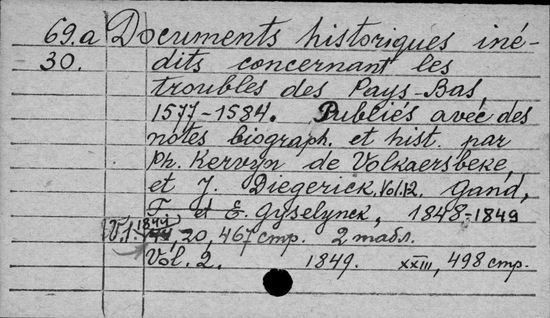 69.a Documents historiques iné-
30. dits concernant les
troubles des Pays-Bas
1577-1584. Publiés avec des
notes biograph. et hist. par
Ph. Kervyn de Volkaersbeke
et J. Diegerick. Vol.1.2. Gand,
F. et E. Gyselynck, 1848-1849
V.1. 1847, 20, 467 стр. 2 табл.
Vol. 2. 1849. XXIII, 498 стр.